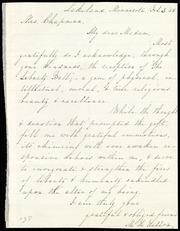 Lakeland, Minnesota, Feb 3. 58
Mrs. Chapman.
My dear Madam,
Most
gratefully do I acknowledge, through
your kindness, the reception of The
Liberty Bell; a gem of physical, in-
tellectual, moral, & truly religious
beauty & excellence.
While the thought
& devotion that prompted the gift
fill me with grateful emotions,
its chiming with ever awaken re-
sponsive echoes within me, & serve
to invigorate & strengthen the fires
of liberty & humanity enkindled
upon the altar of my being.
I am truly your
grateful & obliged friend